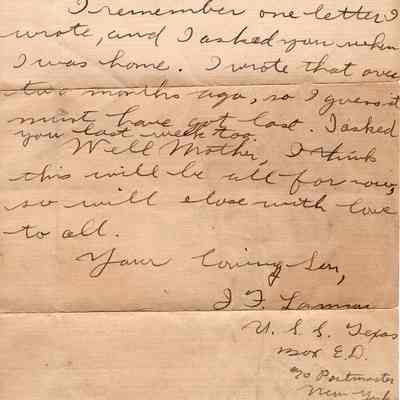 I remember one letter I
wrote, and I asked you when
I was home. I wrote that over
two months ago, so I guess it
must have got lost. I asked
you last week too.
Well Mother, I think
this will be all for now,
so will close with love
to all.
Your loving Son,
J. F.
U. S. S. Texas
Box E.D.
c/o Postmaster
New York